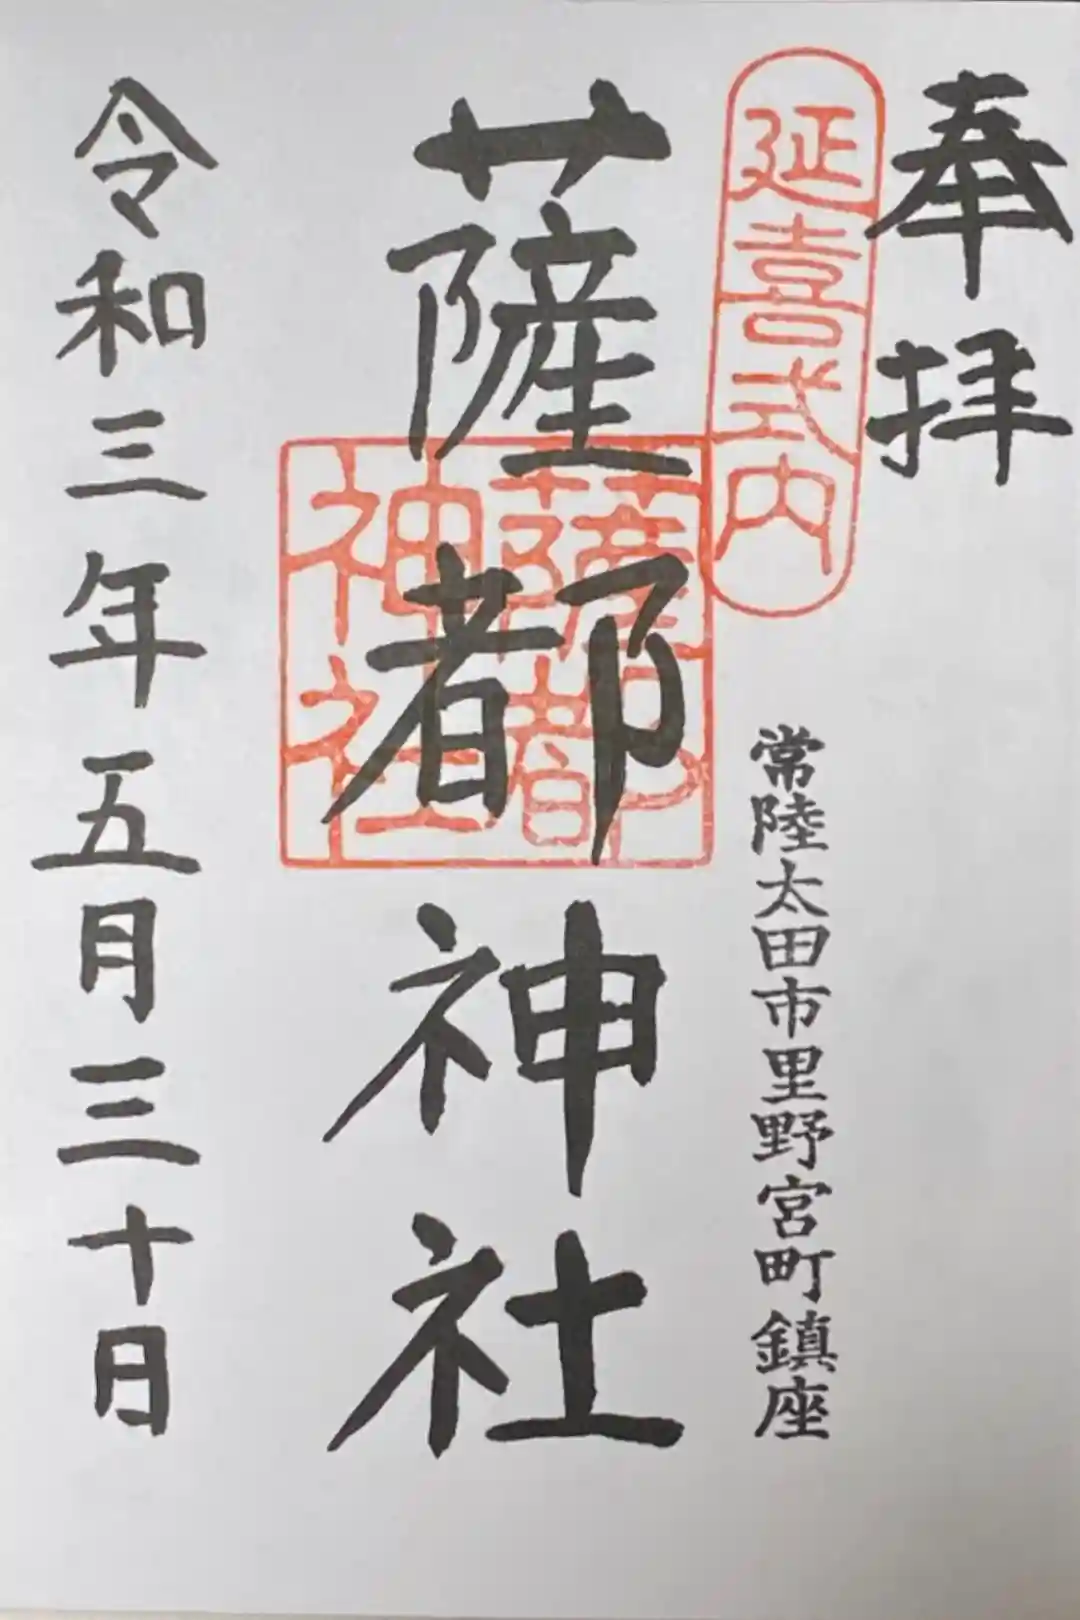 奉拝
延喜式内
常陸太田市里野宮町鎮座
薩都神社
薩都
神社
令和三年五月三十日